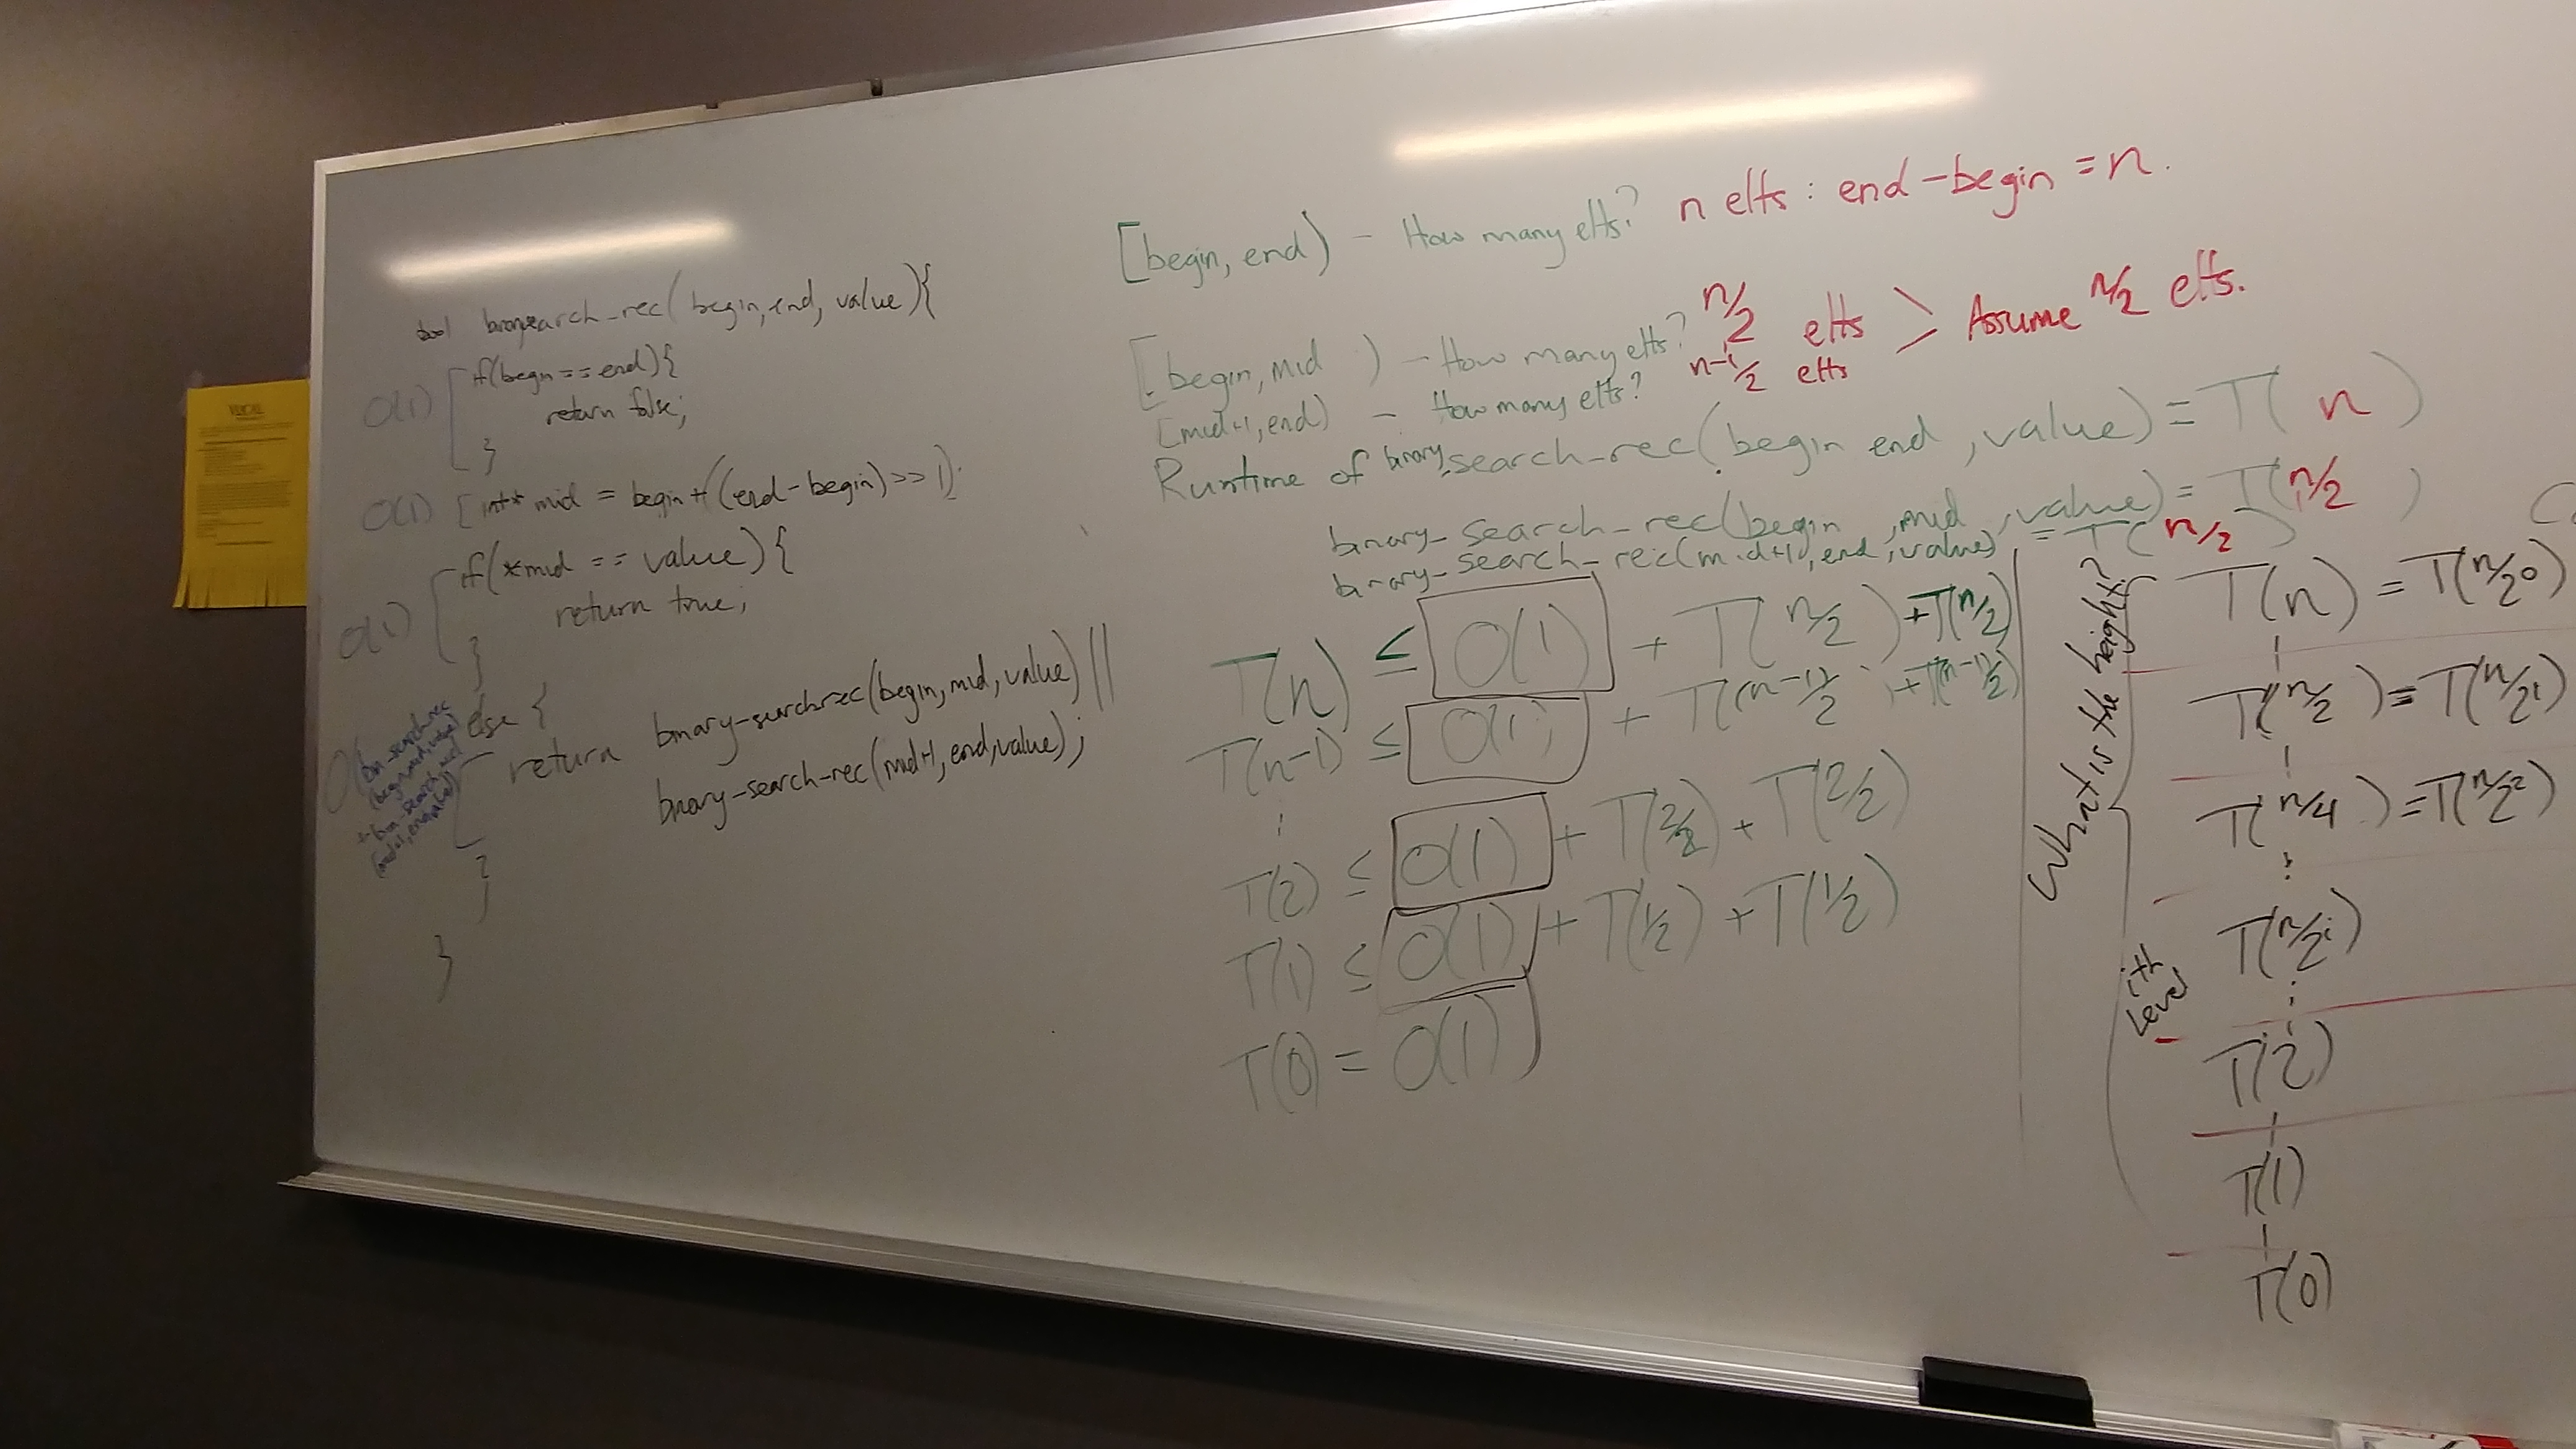 bool binarysearch_rec(begin,end, value){
O(1) if(begin==end){
return false;
}
O(1) int* mid = begin+((end-begin)>>1);
O(1) if(*mid == value){
return true;
}
else {
return binary-search-rec(begin,mid,value) ||
binary-search-rec(mid+1,end,value);
}
}
[begin, end) - How many elts? n elts: end-begin = n.
[begin, mid ) - How many elts? n/2 elts > Assume n/2 elts.
[mid+1,end) - How many elts? n-1/2 elts
Runtime of binary_search_rec(begin end ,value) = T( n )
binary_search_rec(begin ,mid ,value) = T(n/2 )
binary_search_rec(mid+1,end,value) = T( n/2 )
T(n) ≤ O(1) + T( n/2 ) + T(n/2)
T(n-1) ≤ O(1) + T((n-1)/2 ) + T((n-1)/2)
⋮
T(2) ≤ O(1) + T(2/2) + T(2/2)
T(1) ≤ O(1) + T(1/2) + T(1/2)
T(0) = O(1)
What is the height?
T(n) = T(n/2^0)
T(n/2) = T(n/2^1)
T(n/4) = T(n/2^2)
⋮
ith level
T(n/2^i)
⋮
T(2)
T(1)
T(0)